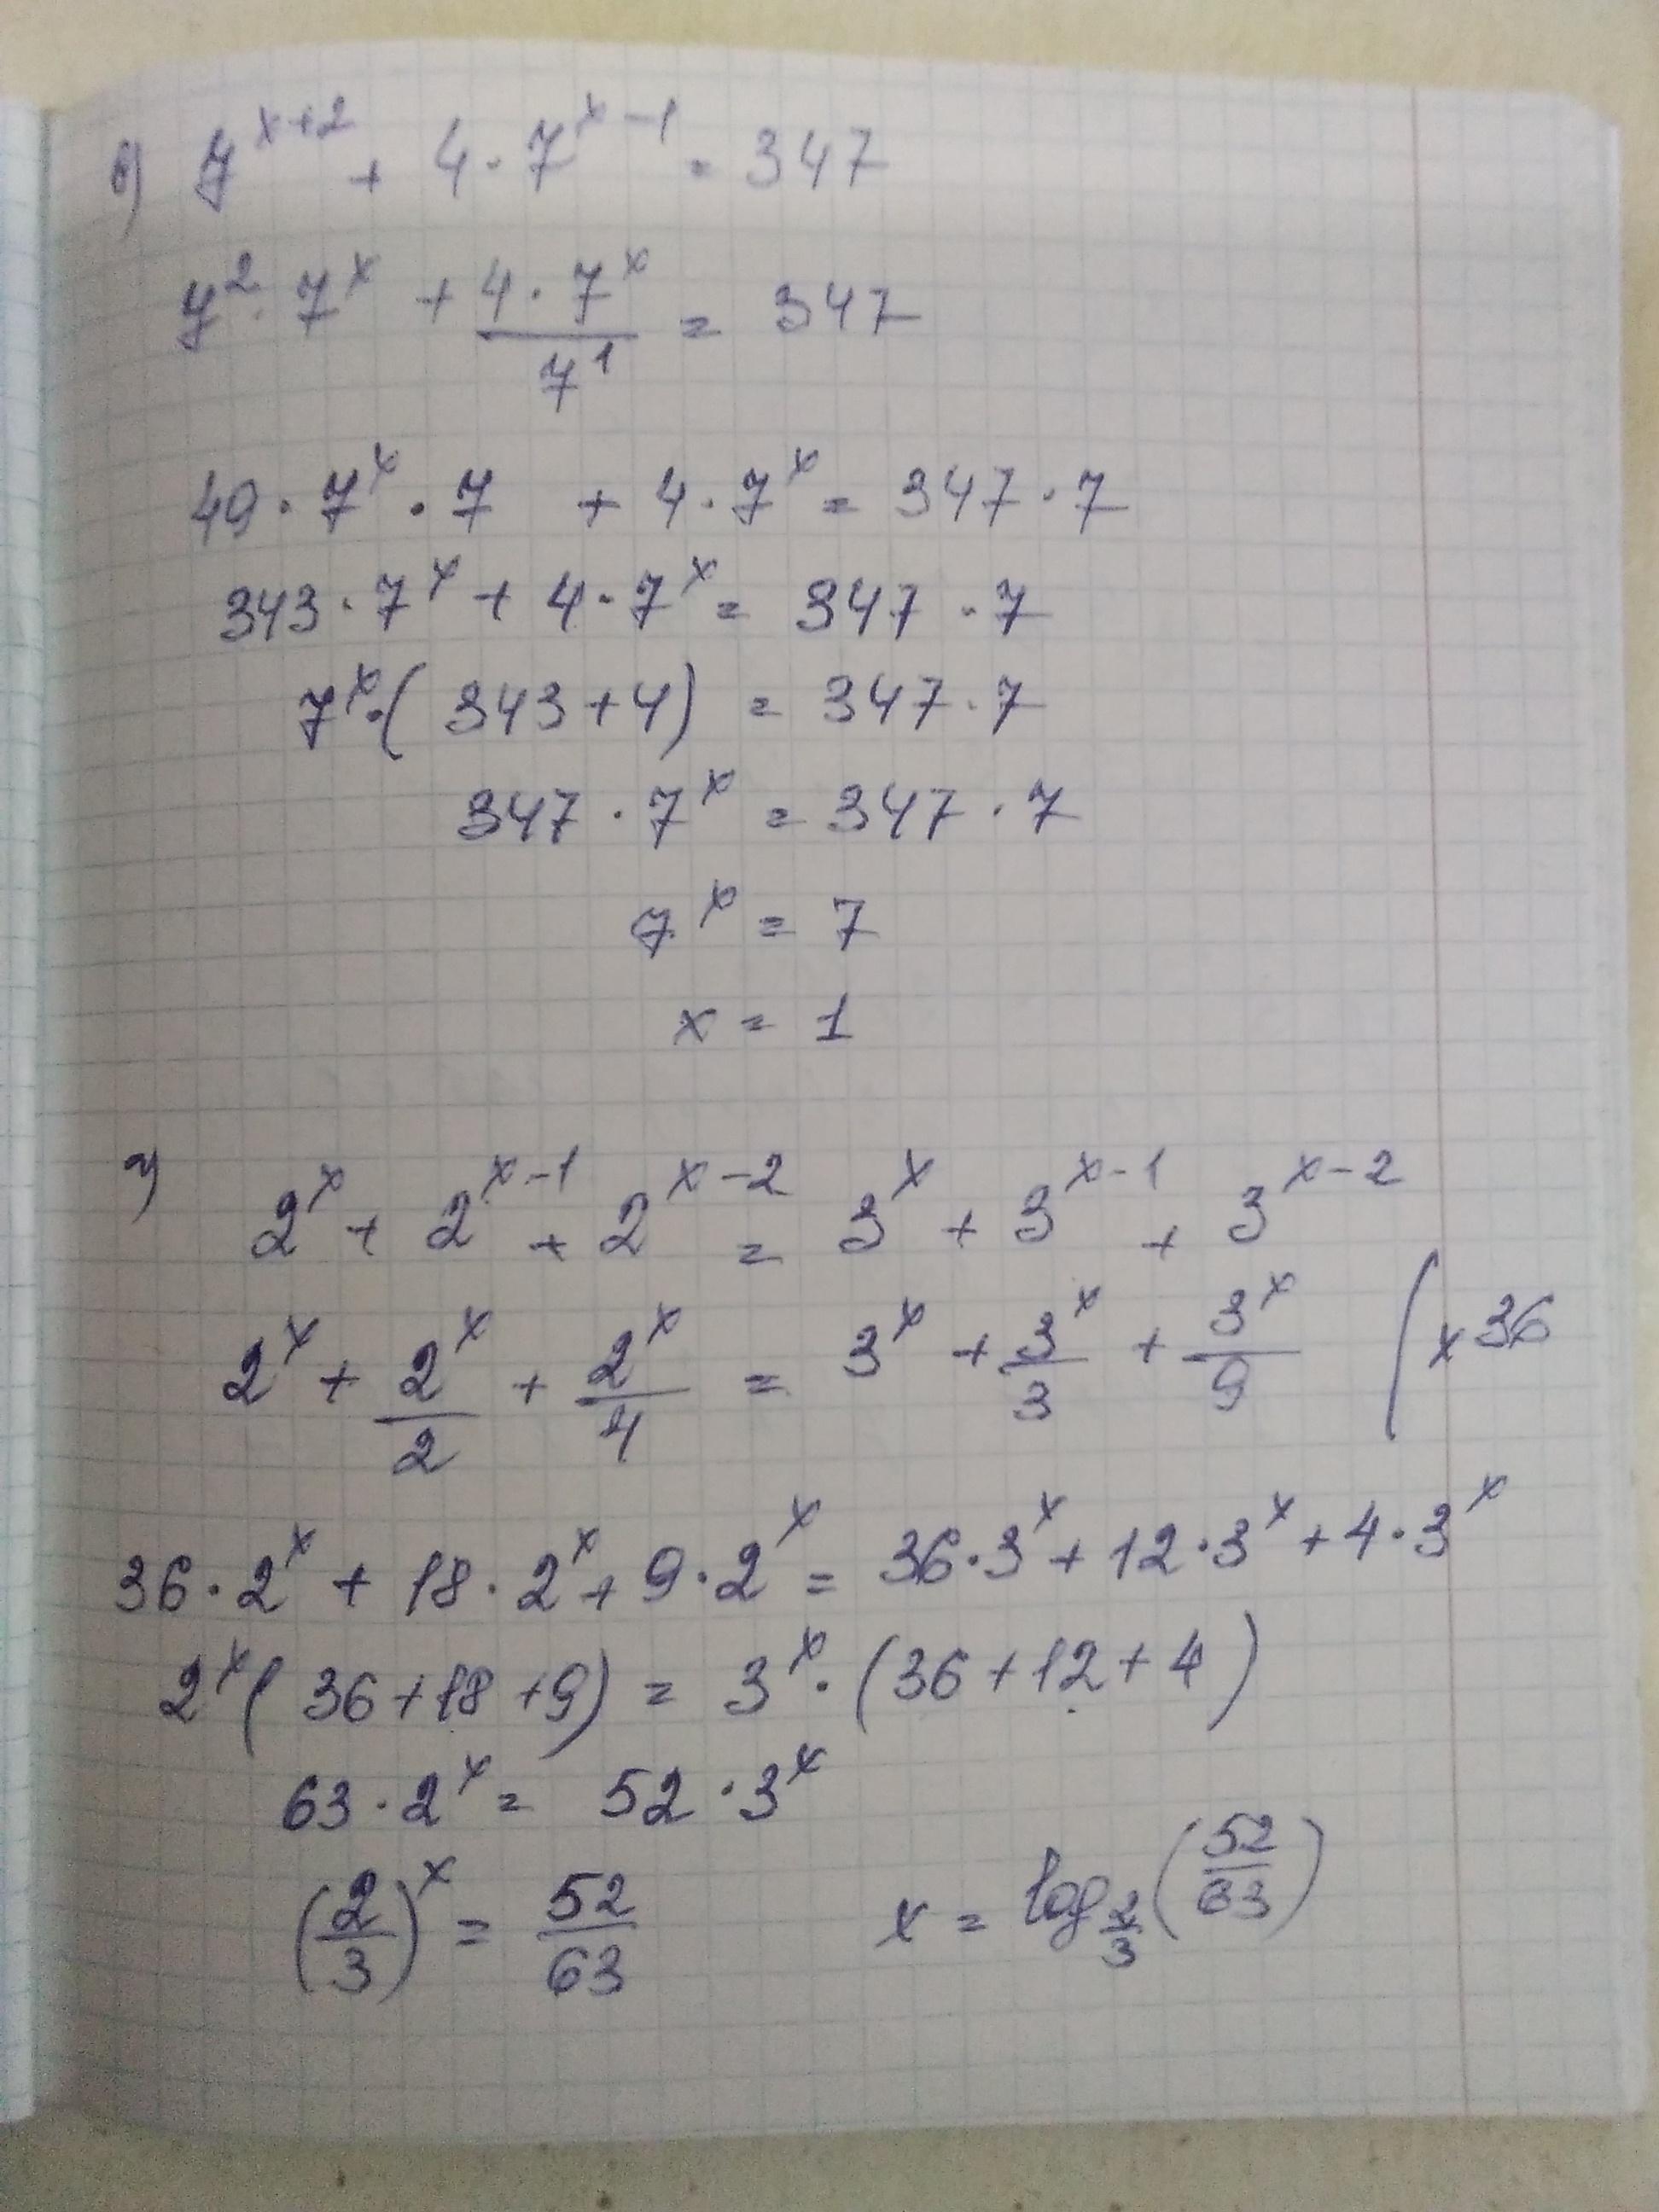 в) 7^{x+2} + 4 · 7^{x-1} = 347
7^2 · 7^x + \frac{4 · 7^x}{7^1} = 347
49 · 7^x · 7 + 4 · 7^x = 347 · 7
343 · 7^x + 4 · 7^x = 347 · 7
7^x · (343 + 4) = 347 · 7
347 · 7^x = 347 · 7
7^x = 7
x = 1
г) 2^x + 2^{x-1} + 2^{x-2} = 3^x + 3^{x-1} + 3^{x-2}
2^x + \frac{2^x}{2} + \frac{2^x}{4} = 3^x + \frac{3^x}{3} + \frac{3^x}{9} | × 36
36 · 2^x + 18 · 2^x + 9 · 2^x = 36 · 3^x + 12 · 3^x + 4 · 3^x
2^x (36 + 18 + 9) = 3^x · (36 + 12 + 4)
63 · 2^x = 52 · 3^x
(\frac{2}{3})^x = \frac{52}{63} x = log_{\frac{2}{3}} (\frac{52}{63})